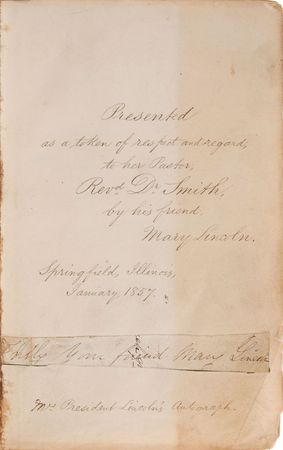 Presented
as a token of respect and regard,
to her Pastor,
Revd Dr Smith,
by his friend,
Mary Lincoln.
Springfield, Illinois,
January, 1857.
Your friend Mary Lincoln
Mrs President Lincoln's Autograph.